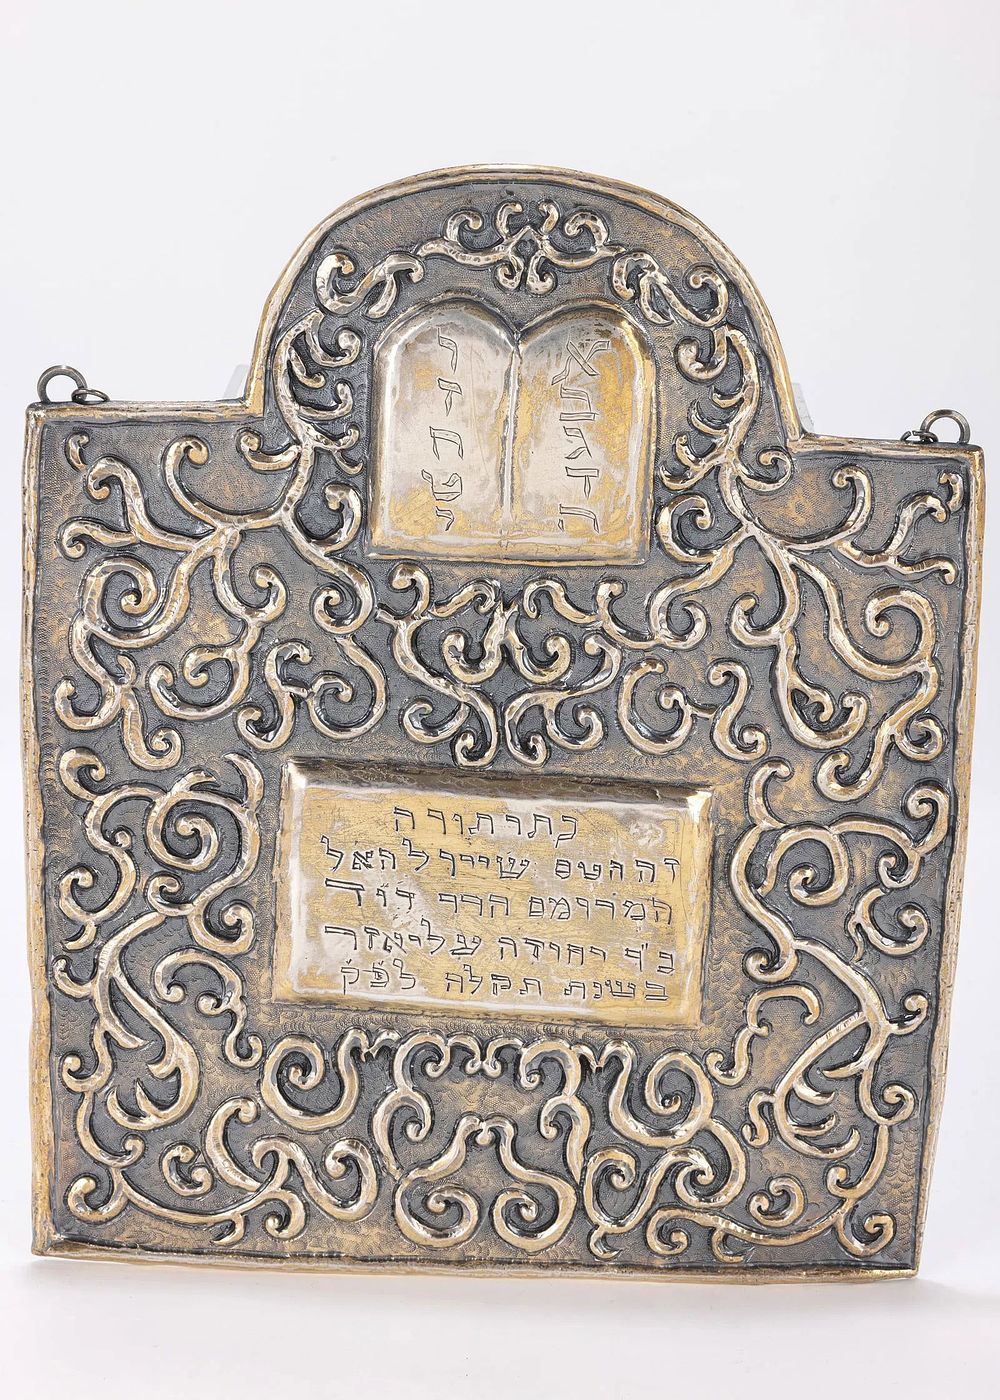 א
ב
ג
ד
ה
ו
ז
ח
ט
י
כתר תורה
זה הטס שייך להאל
המרומם הרר דוד
ב"ר יהודה עליאזר
בשנת תקלה לפק